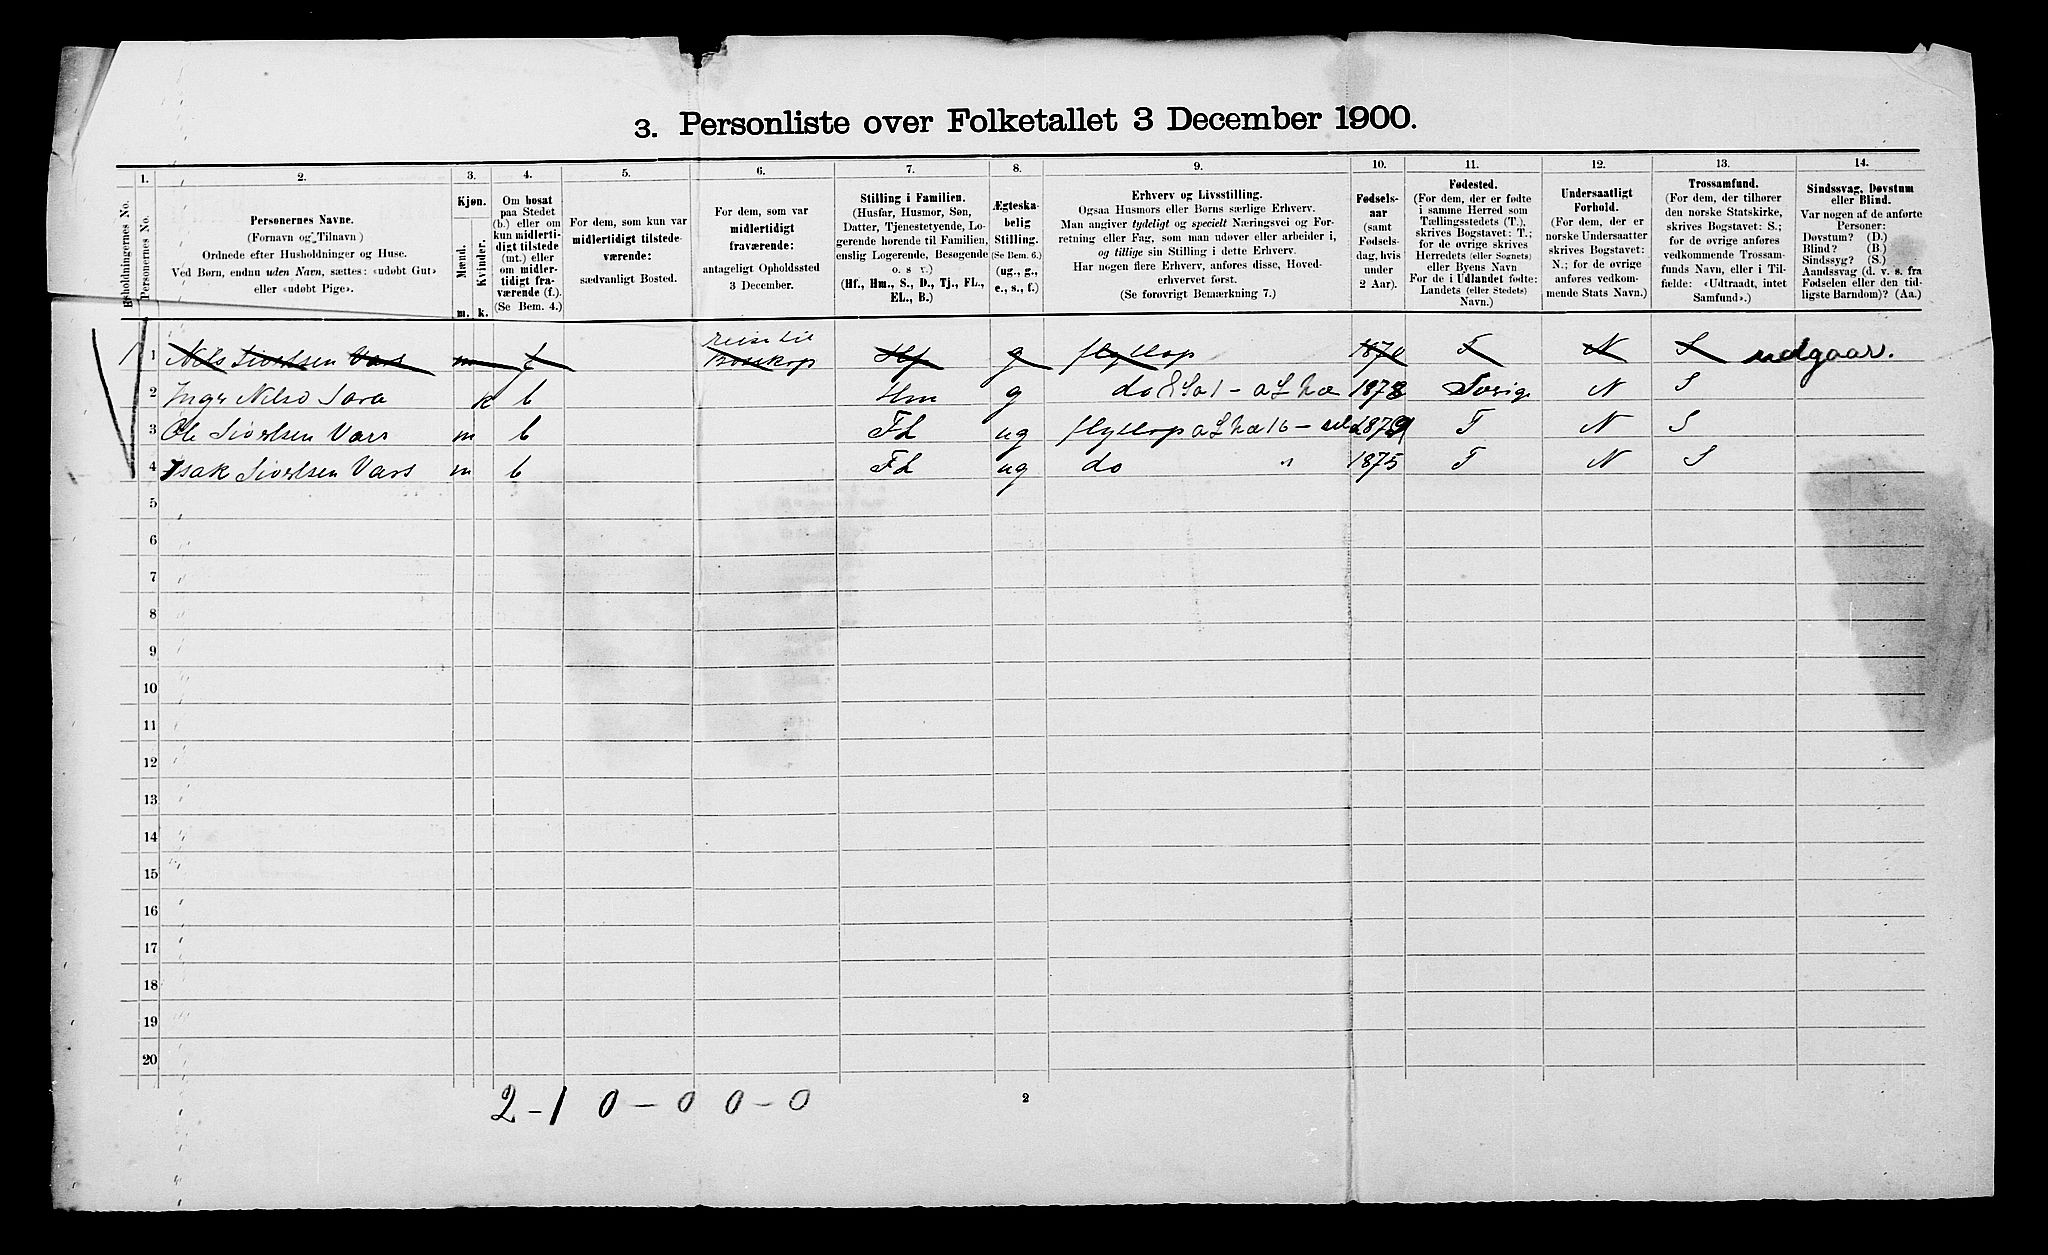 3. Personliste over Folketallet 3 December 1900.
1. 2. 3. 4. 5. 6. 7. 8. 9. 10. 11. 12. 13. 14.
Husholdningernes No.
Personernes No.
Personernes Navne.
(Fornavn og Tilnavn)
Ordnede efter Husholdninger og Huse.
Ved Børn, endnu uden Navn, sættes: «udøbt Gut»
eller «udøbt Pige».
Kjøn.
Mænd.
Kvinder.
m. k.
Om bosat
paa Stedet
(b.) eller om
kun midlerti-
digt tilstede
(mt.) eller
om midler-
tidigt fra-
værende (f.).
(Se Bem. 4.)
For dem, som kun var
midlertidigt tilstede-
værende:
sædvanligt Bosted.
For dem, som var
midlertidigt
fraværende:
antageligt Opholdssted
3 December.
Stilling i Familien.
(Husfar, Husmor, Søn,
Datter, Tjenestetyende, Lo-
gerende hørende til Familien,
enslig Logerende, Besøgende
o. s v.)
(Hf., Hm., S., D., Tj., FL.,
EL., B.)
Ægteska-
belig
Stilling.
(Se Bem. 6.)
(ug., g.,
e., s., f.)
Erhverv og Livsstilling.
Ogsaa Husmors eller Børns særlige Erhverv.
Man angiver tydeligt og specielt Næringsvei og For-
retning eller Fag, som man udøver eller arbeider i,
og tillige sin Stilling i dette Erhverv.
Har nogen flere Erhverv, anføres disse, Hoved-
erhvervet først.
(Se forøvrigt Bemærkning 7.)
Fødsels-
aar
(samt
Fødsels-
dag, hvis
under
2 Aar).
Fødested.
(For dem, der er fødte
i samme Herred som
Tællingsstedets (T.),
skrives Bogstavet: T.;
for de øvrige skrives
Herredets (eller Sognets)
eller Byens Navn
For de i Udlandet fødte:
Landets (eller Stedets)
Navn.)
Undersaatligt
Forhold.
(For dem, der er
norske Undersaatter
skrives Bogstavet:
N.; for de øvrige
anføres vedkom-
mende Stats Navn.)
Trossamfund.
(For dem, der tilhører
den norske Statskirke,
skrives Bogstavet: S.;
for de øvrige anføres
vedkommende Trossam-
funds Navn, eller i Til-
fælde: «Udtraadt, intet
Samfund».)
Sindssvag, Døvstum
eller Blind.
Var nogen af de anførte
Personer:
Døvstum? (D.)
Blind? (B.)
Sindssyg? (S.)
Aandssvag (d. v. s. fra
Fødselen eller den tid-
ligste Barndom)? (Aa.)
reise til
1 1 Nils Sivertsen Vars m f Bossekop Hf g flytlap 1870 T N S udgaar.
2 Inger Nilsd Sara k b Hm g do 1878 Sverige N S
3 Ole Sivertsen Vars m b FL ug flytlap 1879 T N S
4 Isak Sivertsen Vars m b FL ug do " 1875 T N S
5
6
7
8
9
10
11
12
13
14
15
16
17
18
19
20
2-1 0-0 0-0
2